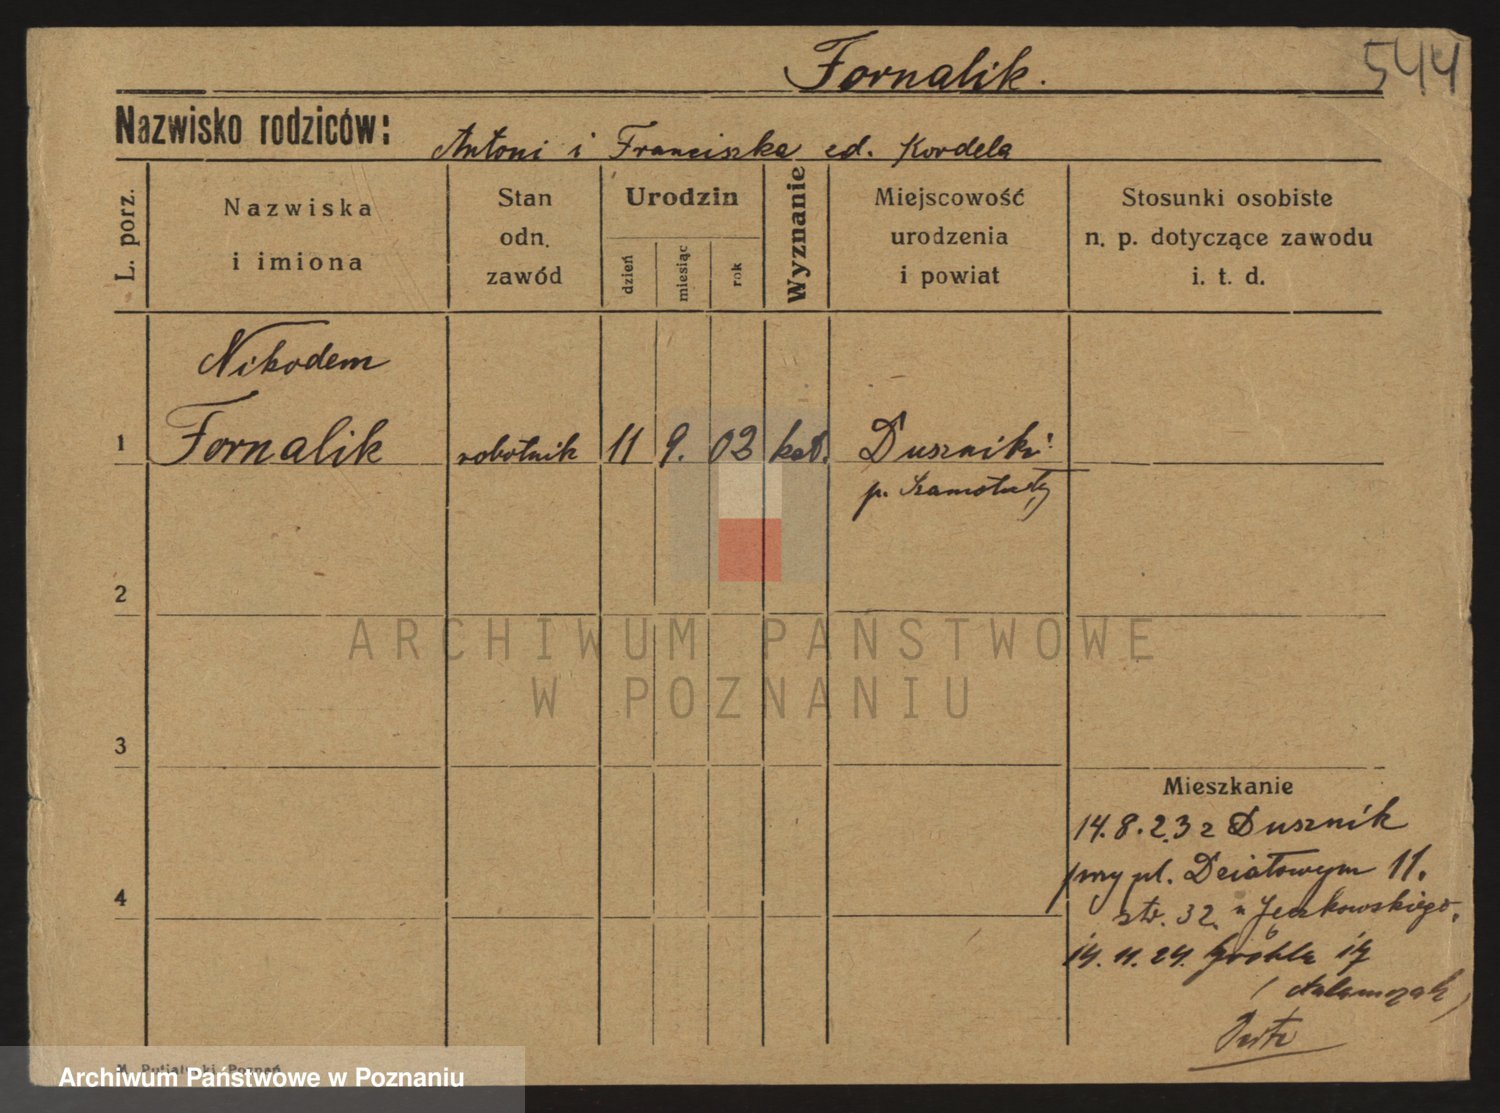 Fornalik.
544
Nazwisko rodziców: Antoni i Franciszka cd. Kordela
L. porz.
Nazwiska i imiona
Stan odn. zawód
Urodzin
dzień
miesiąc
rok
Wyznanie
Miejscowość urodzenia i powiat
Stosunki osobiste n. p. dotyczące zawodu i. t. d.
Nikodem
1 Fornalik robotnik 11 9. 02 kat. Duszniki
p. Szamotuły
2
ARCHIWUM PAŃSTWOWE
W POZNANIU
3
Mieszkanie
14.8.23 z Dusznik
przy pl. Działowym 11.
str. 32.
4
14.11.24. Grobla
Archiwum Państwowe w Poznaniu